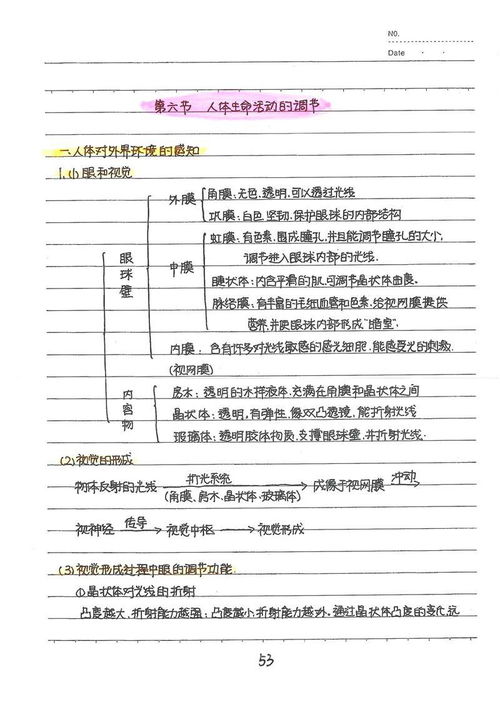 NO.
Date
第六节 人体生命活动的调节
一、人体对外界环境的感知
1、(1)眼和视觉
眼球壁
外膜
角膜、无色、透明、可以透过光线
巩膜：白色、坚韧、保护眼球的内部结构
中膜
虹膜、有色素、围成瞳孔、并且能调节瞳孔的大小，
调节进入眼球内部的光线.
睫状体：内含平滑的肌、可调节晶状体曲度。
脉络膜、有丰富的毛细血管和色素、给视网膜提供
营养、并使眼球内部形成“暗室”.
内膜：含有许多对光线敏感的感光细胞、能感受光的刺激.
(视网膜)
内容物
房水：透明的水样液体、充满在角膜和晶状体之间
晶状体：透明、有弹性、像双凸透镜、能折射光线
玻璃体：透明胶体物质、支撑眼球壁、并折射光线.
(2)视觉的形成
物体反射的光线 折光系统 (角膜、房水、晶状体、玻璃体) 成像于视网膜 冲动
视神经 传导 视觉中枢 视觉形成
(3)视觉形成过程中眼的调节功能
①晶状体对光线的折射
凸度越大、折射能力越强；凸度越小折射能力越 通过晶状体凸度的变化,
53